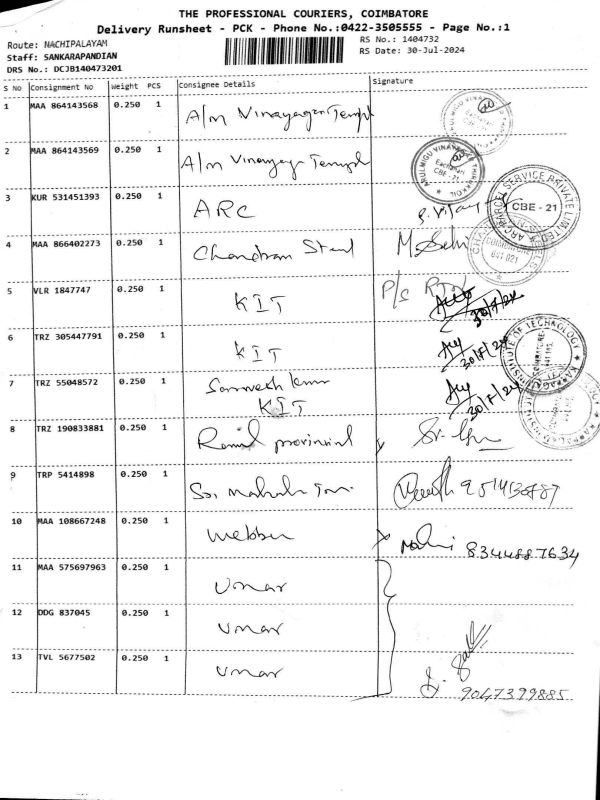 THE PROFESSIONAL COURIERS, COIMBATORE
Delivery Runsheet - PCK - Phone No.:0422-3505555 - Page No.:1
Route: NACHIPALAYAM
RS No.: 1404732
Staff: SANKARAPANDIAN
RS Date: 30-Jul-2024
DRS No.: DCJB140473201
S No Consignment No Weight PCS Consignee Details Signature
1 MAA 864143568 0.250 1 A/m Vinayagar Templ
2 MAA 864143569 0.250 1 A/m Vinayaga Templ
CBE - 21
3 KUR 531451393 0.250 1 ARC
ARC PARCEL SERVICE PRIVATE LIMITED
CBE - 21
4 MAA 866402273 0.250 1 Chandran Steel
COIMBATORE
641 021
5 VLR 1847747 0.250 1 KIT
30/7/24
6 TRZ 305447791 0.250 1 KIT 30/7/24
INSTITUTE OF TECHNOLOGY
7 TRZ 55048572 0.250 1 Sarvesh kumar
KIT 30/7/24
8 TRZ 190833881 0.250 1 provincial
9 TRP 5414898 0.250 1 Sri
10 MAA 108667248 0.250 1 Webber 8344887634
11 MAA 575697963 0.250 1 Umar
12 DDG 837045 0.250 1 Umar
13 TVL 5677502 0.250 1 Umar
9047399885